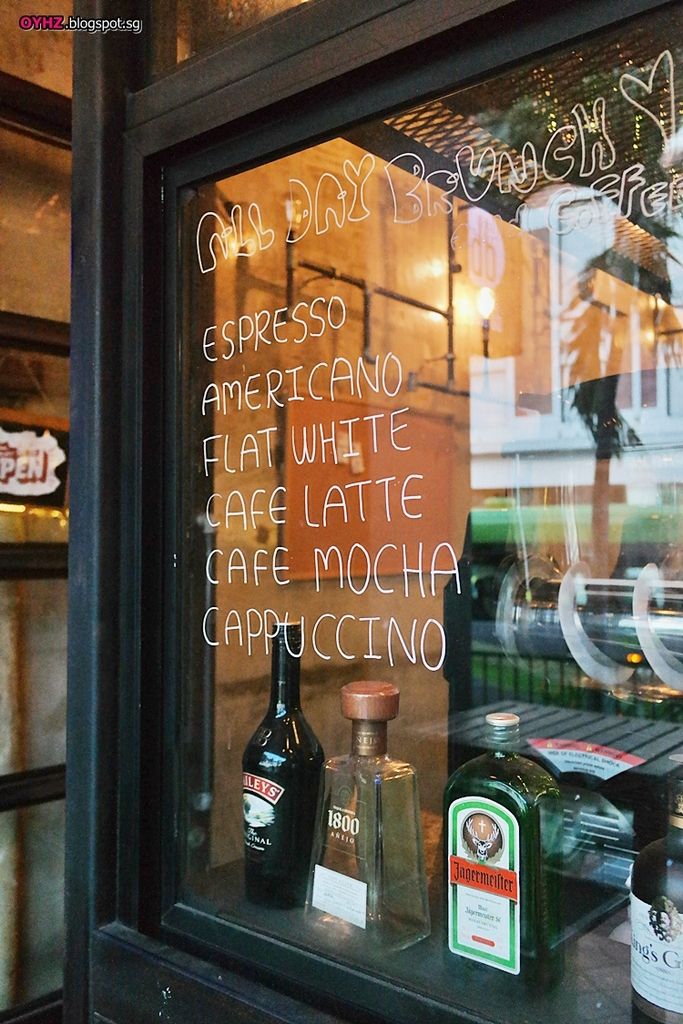 OYHZ.blogspot.sg
ALL DAY BRUNCH
COFFEE
ESPRESSO
AMERICANO
FLAT WHITE
CAFE LATTE
CAFE MOCHA
CAPPUCCINO
PEN
ILEYS
INAL
1800
AÑEJO
Jägermeister
ing's G